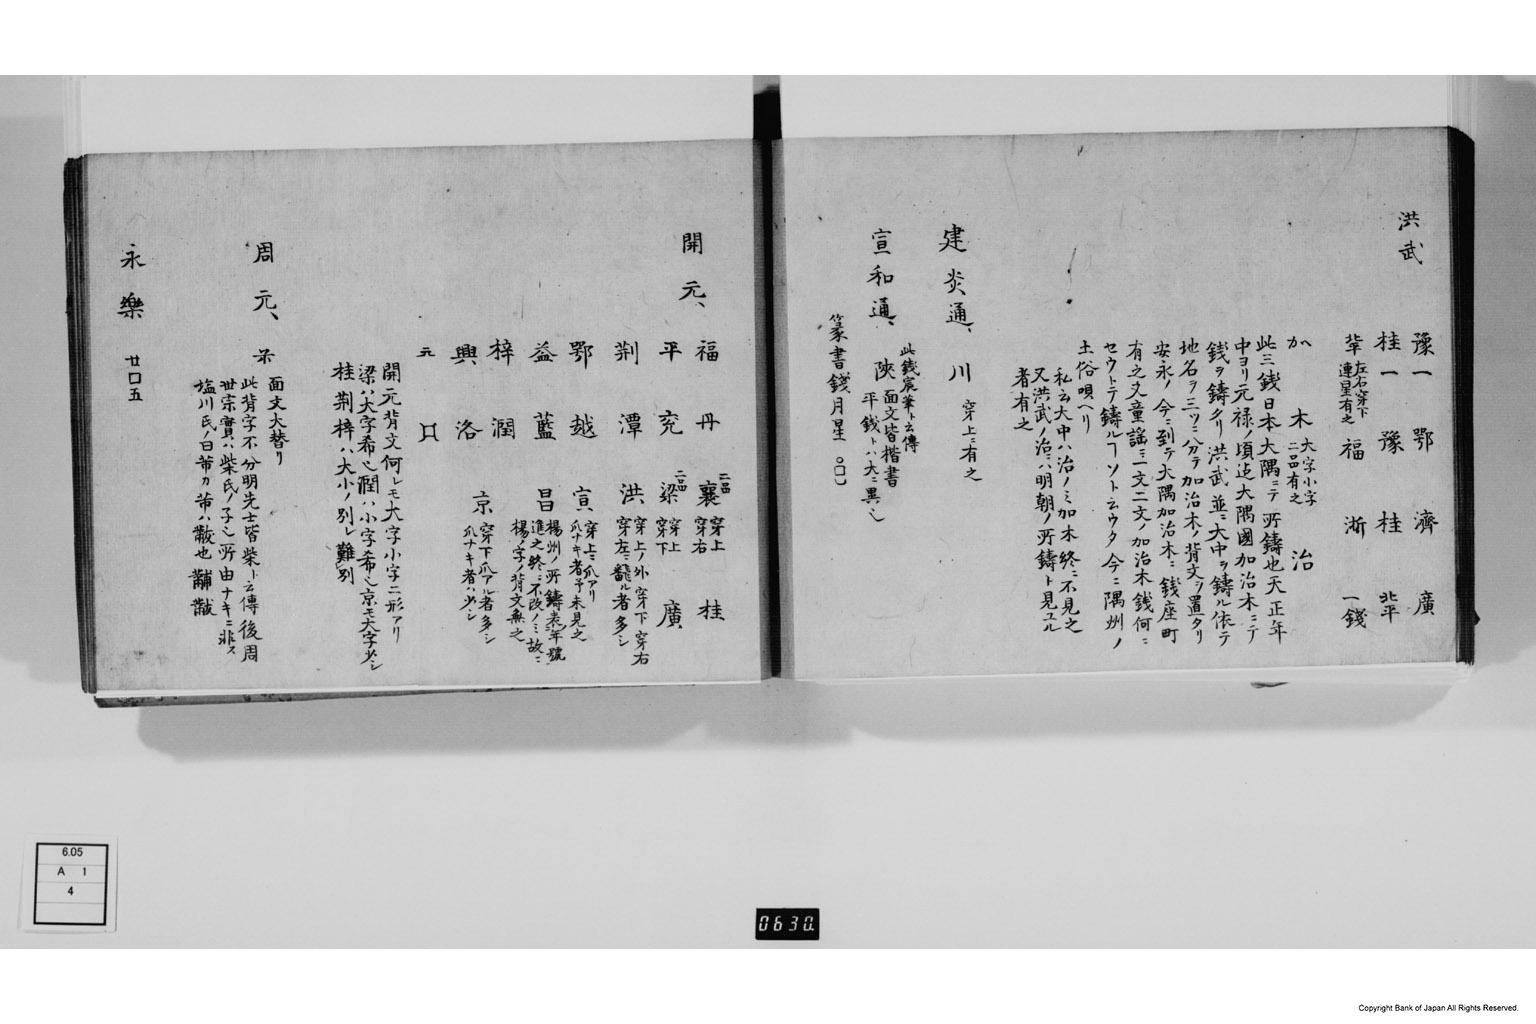 洪武
豫一 鄂 濟 廣
桂一 豫 桂 北平
左右穿下
連星有之
福 浙 一錢
加 木 治
大字小字
二品有之
此三錢日本大隅ニテ所鑄也天正年
中ヨリ元禄ノ頃迠大隅國加治木ニテ
錢ヲ鑄タリ洪武並ニ大中ヲ鑄ル依テ
地名ヲ三ツニ分テ加治木ノ背文ヲ置タリ
安永ノ今ニ到テ大隅加治木ニ錢座町
有之又童謡ニ一文二文ノ加治木錢何ニ
セウトテ鑄ルヿソト云ウタ今ニ隅州ノ
土俗唄ヘリ
私云大中ハ治ノミ加木終ニ不見之
又洪武ノ治ハ明朝ノ所鑄ト見ユル
者有之
建炎通、 川 穿上ニ有之
此錢宸筆ト云傳
宣和通、 陝 面文皆楷書
平錢トハ大ニ異也
篆書錢月星
開元、 福 丹 襄 二品 穿上 穿右 桂
平 兗 梁 二品 穿上 穿下 廣
荆 潭 洪 穿上ノ外穿下穿右
穿左ニ飜ル者多シ
鄂 越 宣 穿上ニ爪アリ
爪ナキ者予未見之
益 藍 昌 楊州ノ所鑄表年號
進之終ニ不改ノミ故ニ
楊ノ字ノ背文無之
梓 潤
興 洛 京 穿下爪アル者多シ
爪ナキ者ハ少シ
元
開元背文何レモ大字小字二形アリ
梁ハ大字希也潤ハ小字希也京モ大字少シ
桂荆梓ハ大小ノ別レ難別
周元、 面文大替リ
此背字不分明先士皆柴ト云傳後周
世宗實ハ柴氏ノ子也所由ナキニ非ス
塩川氏ノ曰
永樂 廿口五
6.05
A 1
4
0630.
Copyright Bank of Japan All Rights Reserved.